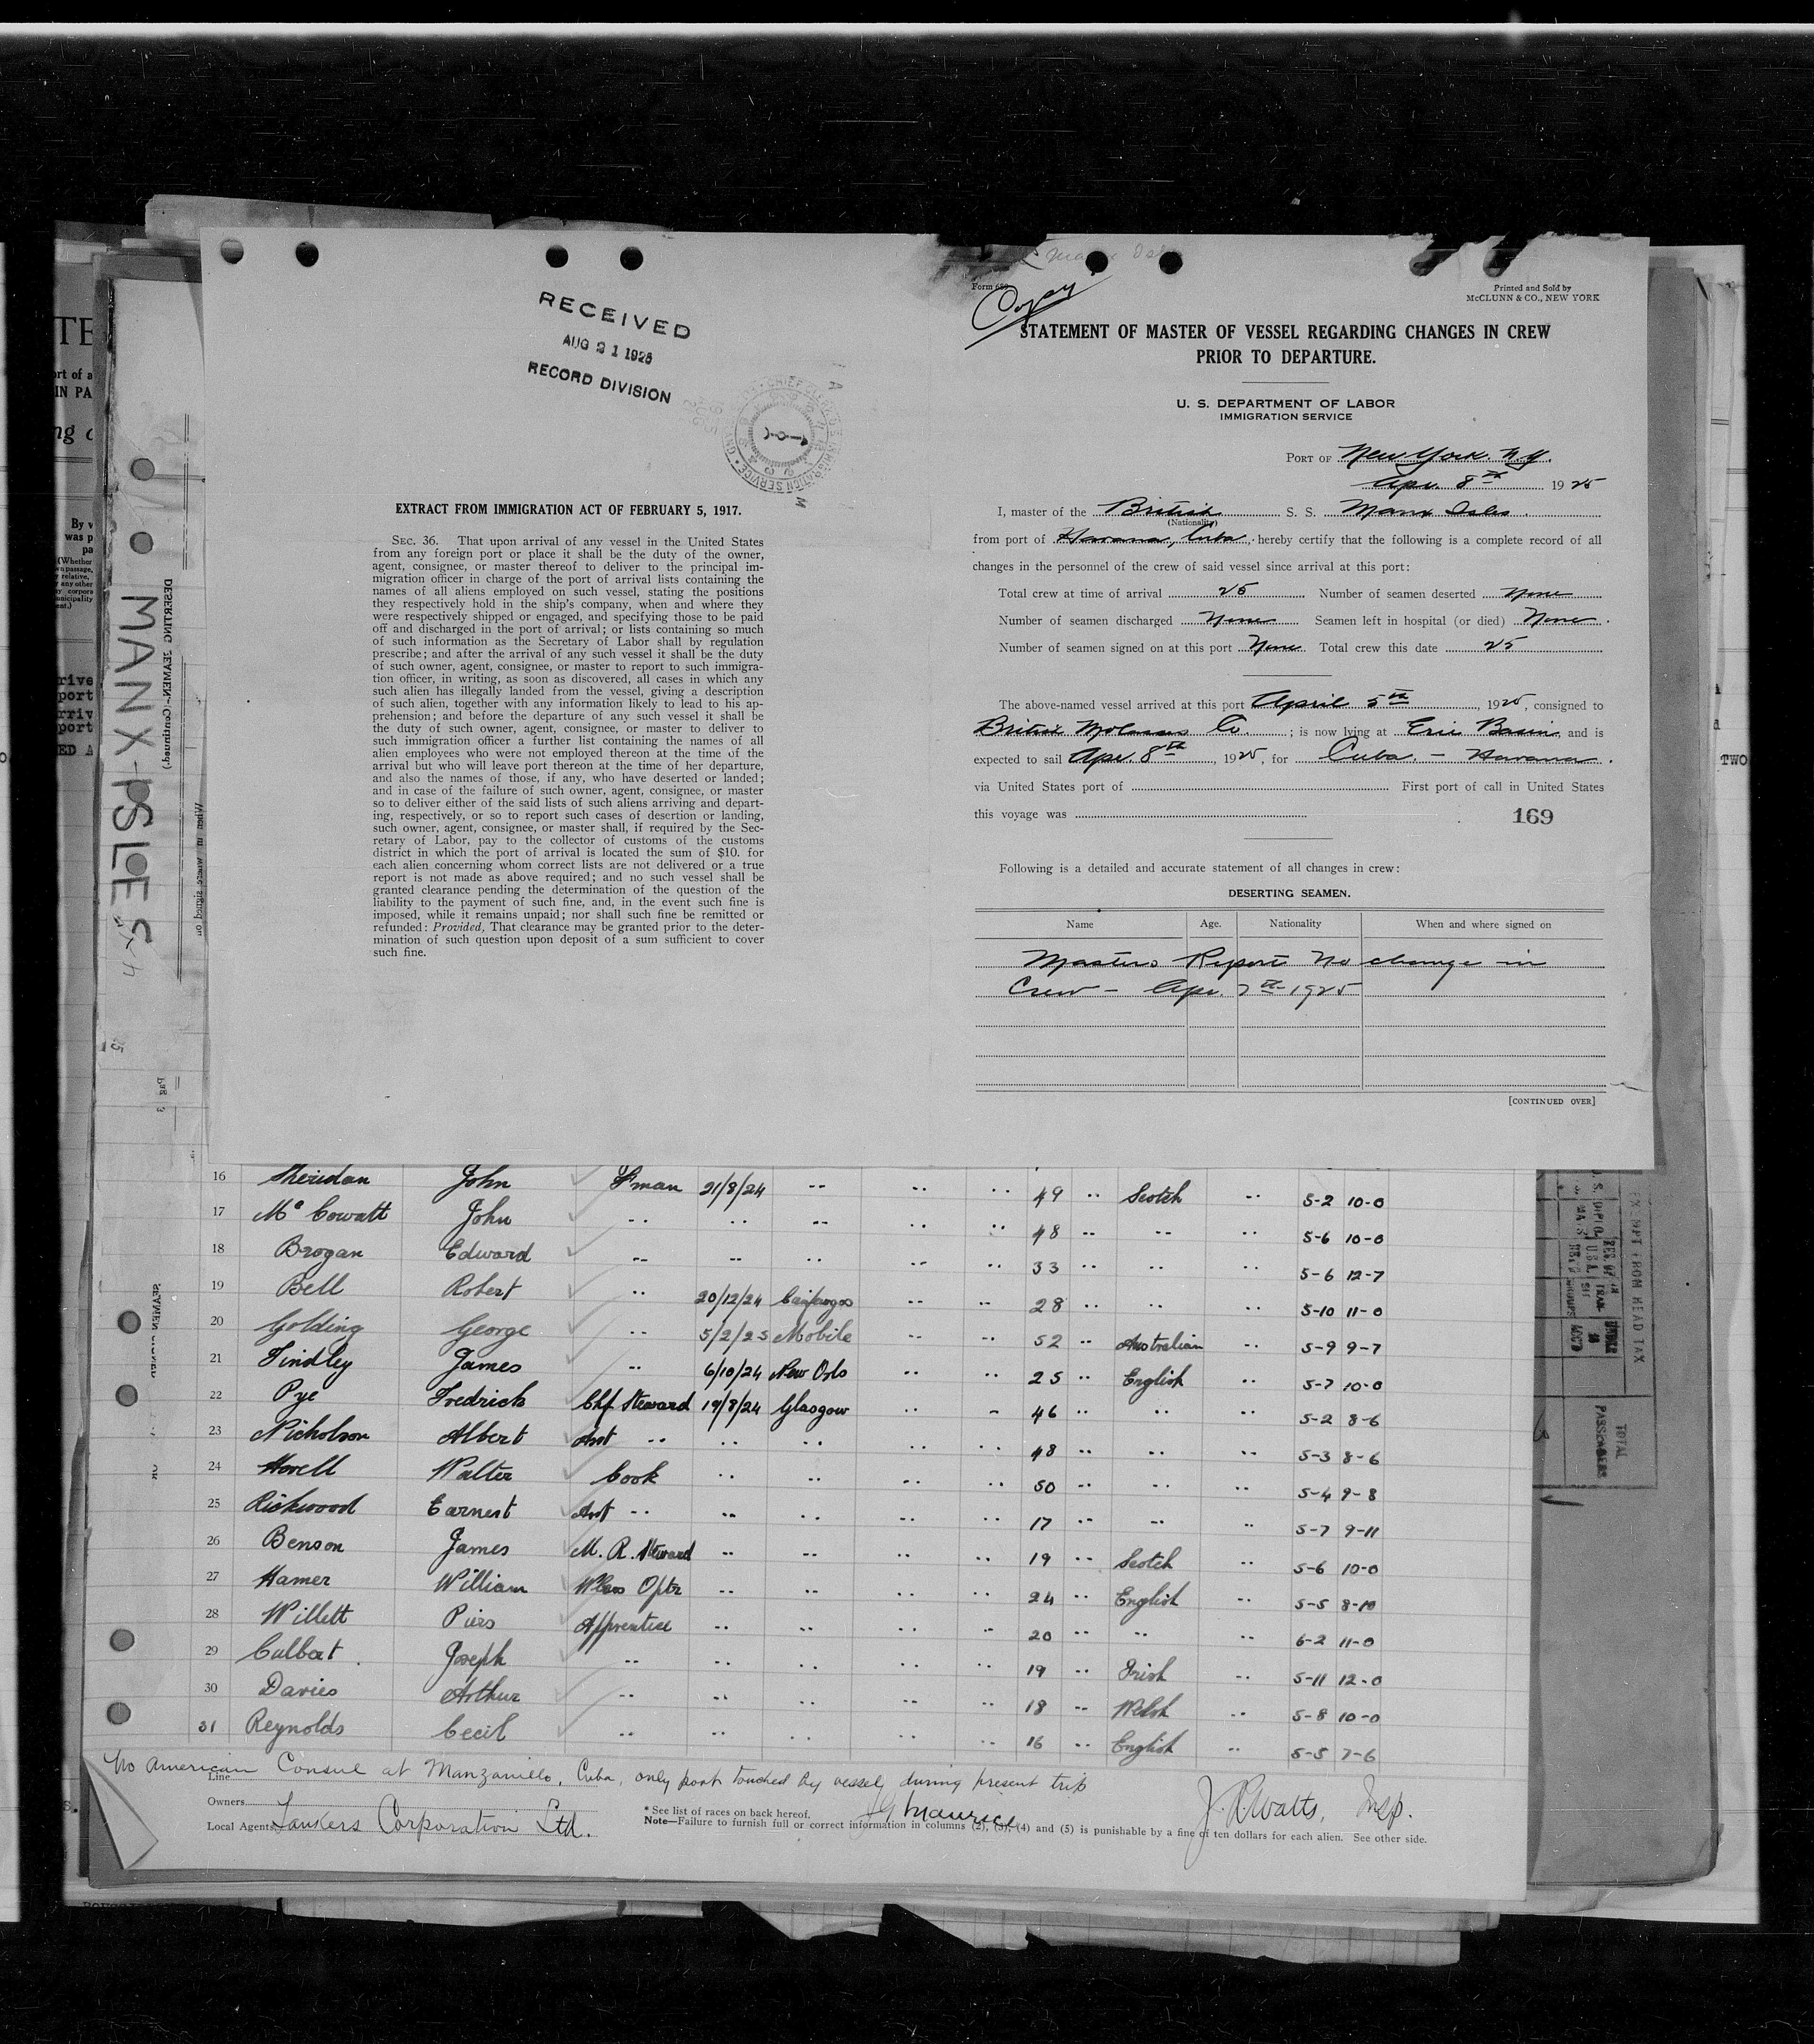 RECEIVED
AUG 21 1926
RECORD DIVISION
EXTRACT FROM IMMIGRATION ACT OF FEBRUARY 5, 1917.
SEC. 36. That upon arrival of any vessel in the United States
from any foreign port or place it shall be the duty of the owner,
agent, consignee, or master thereof to deliver to the principal im-
migration officer in charge of the port of arrival lists containing the
names of all aliens employed on such vessel, stating the positions
they respectively hold in the ship's company, when and where they
were respectively shipped or engaged, and specifying those to be paid
off and discharged in the port of arrival; or lists containing so much
of such information as the Secretary of Labor shall by regulation
prescribe; and after the arrival of any such vessel it shall be the duty
of such owner, agent, consignee, or master to report to such immigra-
tion officer, in writing, as soon as discovered, all cases in which any
such alien has illegally landed from the vessel, giving a description
of such alien, together with any information likely to lead to his ap-
prehension; and before the departure of any such vessel it shall be
the duty of such owner, agent, consignee, or master to deliver to
such immigration officer a further list containing the names of all
alien employees who were not employed thereon at the time of the
arrival but who will leave port thereon at the time of her departure,
and also the names of those, if any, who have deserted or landed;
and in case of the failure of such owner, agent, consignee, or master
so to deliver either of the said lists of such aliens arriving and depart-
ing, respectively, or so to report such cases of desertion or landing,
such owner, agent, consignee, or master shall, if required by the Sec-
retary of Labor, pay to the collector of customs of the customs
district in which the port of arrival is located the sum of $10. for
each alien concerning whom correct lists are not delivered or a true
report is not made as above required; and no such vessel shall be
granted clearance pending the determination of the question of the
liability to the payment of such fine, and, in the event such fine is
imposed, while it remains unpaid; nor shall such fine be remitted or
refunded: Provided, That clearance may be granted prior to the deter-
mination of such question upon deposit of a sum sufficient to cover
such fine.
Form 689
Copy
Printed and Sold by
McCLUNN & CO., NEW YORK
STATEMENT OF MASTER OF VESSEL REGARDING CHANGES IN CREW
PRIOR TO DEPARTURE.
U. S. DEPARTMENT OF LABOR
IMMIGRATION SERVICE
PORT OF New York. N.Y.
Apr. 8th 1925
I, master of the British S. S. Manx Isles.
(Nationality)
from port of Havana, Cuba, hereby certify that the following is a complete record of all
changes in the personnel of the crew of said vessel since arrival at this port:
Total crew at time of arrival 25 Number of seamen deserted None
Number of seamen discharged None Seamen left in hospital (or died) None.
Number of seamen signed on at this port None Total crew this date 25
The above-named vessel arrived at this port April 5th, 1925, consigned to
British Molasses Co.; is now lying at Erie Basin and is
expected to sail Apr. 8th, 1925, for Cuba. - Havana.
via United States port of First port of call in United States
this voyage was
169
Following is a detailed and accurate statement of all changes in crew:
DESERTING SEAMEN.
Name Age. Nationality When and where signed on
Masters Report No change in
Crew - Apr. 7th 1925
[CONTINUED OVER]
MANX-ISLES
DESERTING SEAMEN—(Continued)
When and where signed on
16 Sheridan John F'man 21/8/24 -- -- -- 49 -- Scotch -- 5-2 10-0
17 Mc Cowatt John -- -- -- -- -- 48 -- -- -- 5-6 10-0
18 Brogan Edward -- -- -- -- -- 33 -- -- -- 5-6 12-7
19 Bell Robert -- 20/12/24 -- -- 28 -- -- -- 5-10 11-0
20 Golding George -- 5/2/25 Mobile -- -- 52 -- Australian -- 5-9 9-7
21 Findley James -- 6/10/24 New Orls -- -- 25 -- English -- 5-7 10-0
22 Pye Fredrick Chf Steward 19/8/24 Glasgow -- - 46 -- -- -- 5-2 8-6
23 Nicholson Albert Asst -- -- -- -- -- 48 -- -- -- 5-3 8-6
24 Howell Walter Cook -- -- -- -- 50 -- -- -- 5-4 9-8
25 Rickwood Earnest Asst -- -- -- -- -- 17 -- -- -- 5-7 9-11
26 Benson James M. R. Steward -- -- -- -- 19 -- Scotch -- 5-6 10-0
27 Hamer William W'less Optr -- -- -- -- 24 -- English -- 5-5 8-10
28 Willett Piers Apprentice -- -- -- -- 20 -- -- -- 6-2 11-0
29 Culbert Joseph -- -- -- -- -- 19 -- Irish -- 5-11 12-0
30 Davies Arthur -- -- -- -- -- 18 -- Welsh -- 5-8 10-0
31 Reynolds Cecil -- -- -- -- -- 16 -- English -- 5-5 7-6
No American Consul at Manzanillo, Cuba, only port touched by vessel during present trip
Line
Owners
Local Agents Tankers Corporation Ltd.
* See list of races on back hereof.
Note—Failure to furnish full or correct information in columns (2), (3), (4) and (5) is punishable by a fine of ten dollars for each alien. See other side.
J. R. Watts, Insp.
EXEMPT FROM HEAD TAX
TOTAL
PASSENGERS
TWO